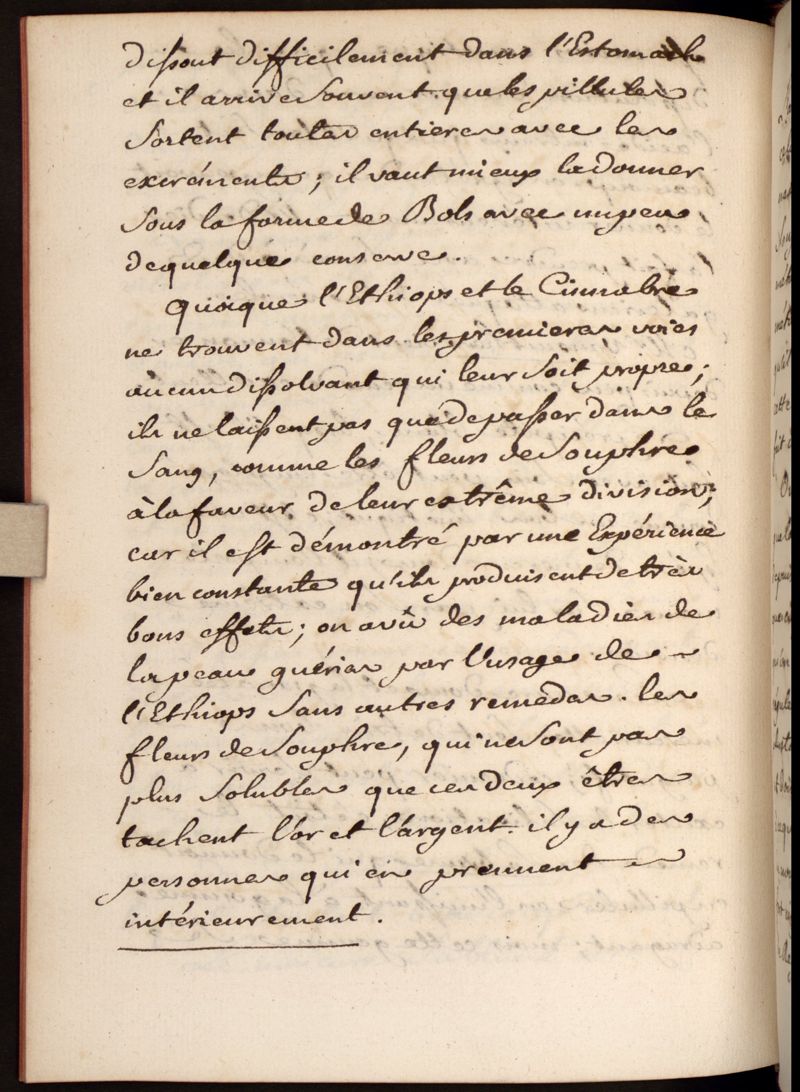 dissout difficilement dans l'Estomach
et il arrive Souvent que les pillules
Sortent toutes entieres avec les
excréments; il vaut mieux la donner
Sous la forme de Bols avec un peu
de quelque conserve.
Quoique l'Ethiops et le Cinnabre
ne trouvent dans les premieres voies
aucun dissolvant qui leur Soit propre;
ils ne laissent pas que de passer dans le
Sang, comme les fleurs de Souphre
à la faveur de leur extrême division;
car il est démontré par une Expérience
bien constante qu'ils produisent de très
bons effets; on a vû des maladies de
la peau guéries par l'usage de
l'Ethiops Sans autres remedes. les
fleurs de Souphre, qui ne Sont pas
plus Solubles que ces deux êtres
tachent l'or et l'argent. il y a des
personnes qui en prennent
intérieurement.